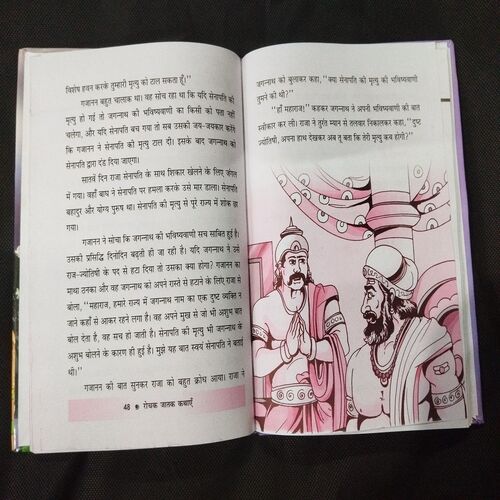 विशेष हवन करके तुम्हारी मृत्यु को टाल सकता हूँ।"
गजानन बहुत चालाक था। वह सोच रहा था कि यदि सेनापति की
मृत्यु हो गई तो जगन्नाथ की भविष्यवाणी का किसी को पता नहीं
चलेगा, और यदि सेनापति बच गया तो सब उसकी जय-जयकार करेंगे
कि गजानन ने सेनापति की मृत्यु टाल दी। इसके बाद जगन्नाथ को
सेनापति द्वारा दंड दिया जाएगा।
सातवें दिन राजा सेनापति के साथ शिकार खेलने के लिए जंगल
में गया। वहाँ बाघ ने सेनापति पर हमला करके उसे मार डाला। सेनापति
बहादुर और योग्य पुरुष था। सेनापति की मृत्यु से पूरे राज्य में शोक छा
गया।
गजानन ने सोचा कि जगन्नाथ की भविष्यवाणी सच साबित हुई है।
उसकी प्रसिद्धि दिनोंदिन बढ़ती ही जा रही है। यदि जगन्नाथ ने उसे
राज-ज्योतिषी के पद से हटा दिया तो उसका क्या होगा? गजानन का
माथा ठनका और वह जगन्नाथ को अपने रास्ते से हटाने के लिए राजा से
बोला, "महाराज, हमारे राज्य में जगन्नाथ नाम का एक दुष्ट व्यक्ति न
जाने कहाँ से आकर रहने लगा है। वह अपने मुख से जो भी अशुभ बात
बोल देता है, वह सच हो जाती है। सेनापति की मृत्यु भी जगन्नाथ के
अशुभ बोलने के कारण ही हुई है। मुझे यह बात स्वयं सेनापति ने बताई
थी।"
गजानन की बात सुनकर राजा को बहुत क्रोध आया। राजा ने
48 ● रोचक जातक कथाएँ
जगन्नाथ को बुलाकर कहा, "क्या सेनापति की मृत्यु की भविष्यवाणी
तुमने की थी?"
"हाँ महाराज!" कहकर जगन्नाथ ने अपनी भविष्यवाणी की बात
स्वीकार कर ली। राजा ने तुरंत म्यान से तलवार निकालकर कहा, "दुष्ट
ज्योतिषी, अपना हाथ देखकर अब तू बता कि तेरी मृत्यु कब होगी?"